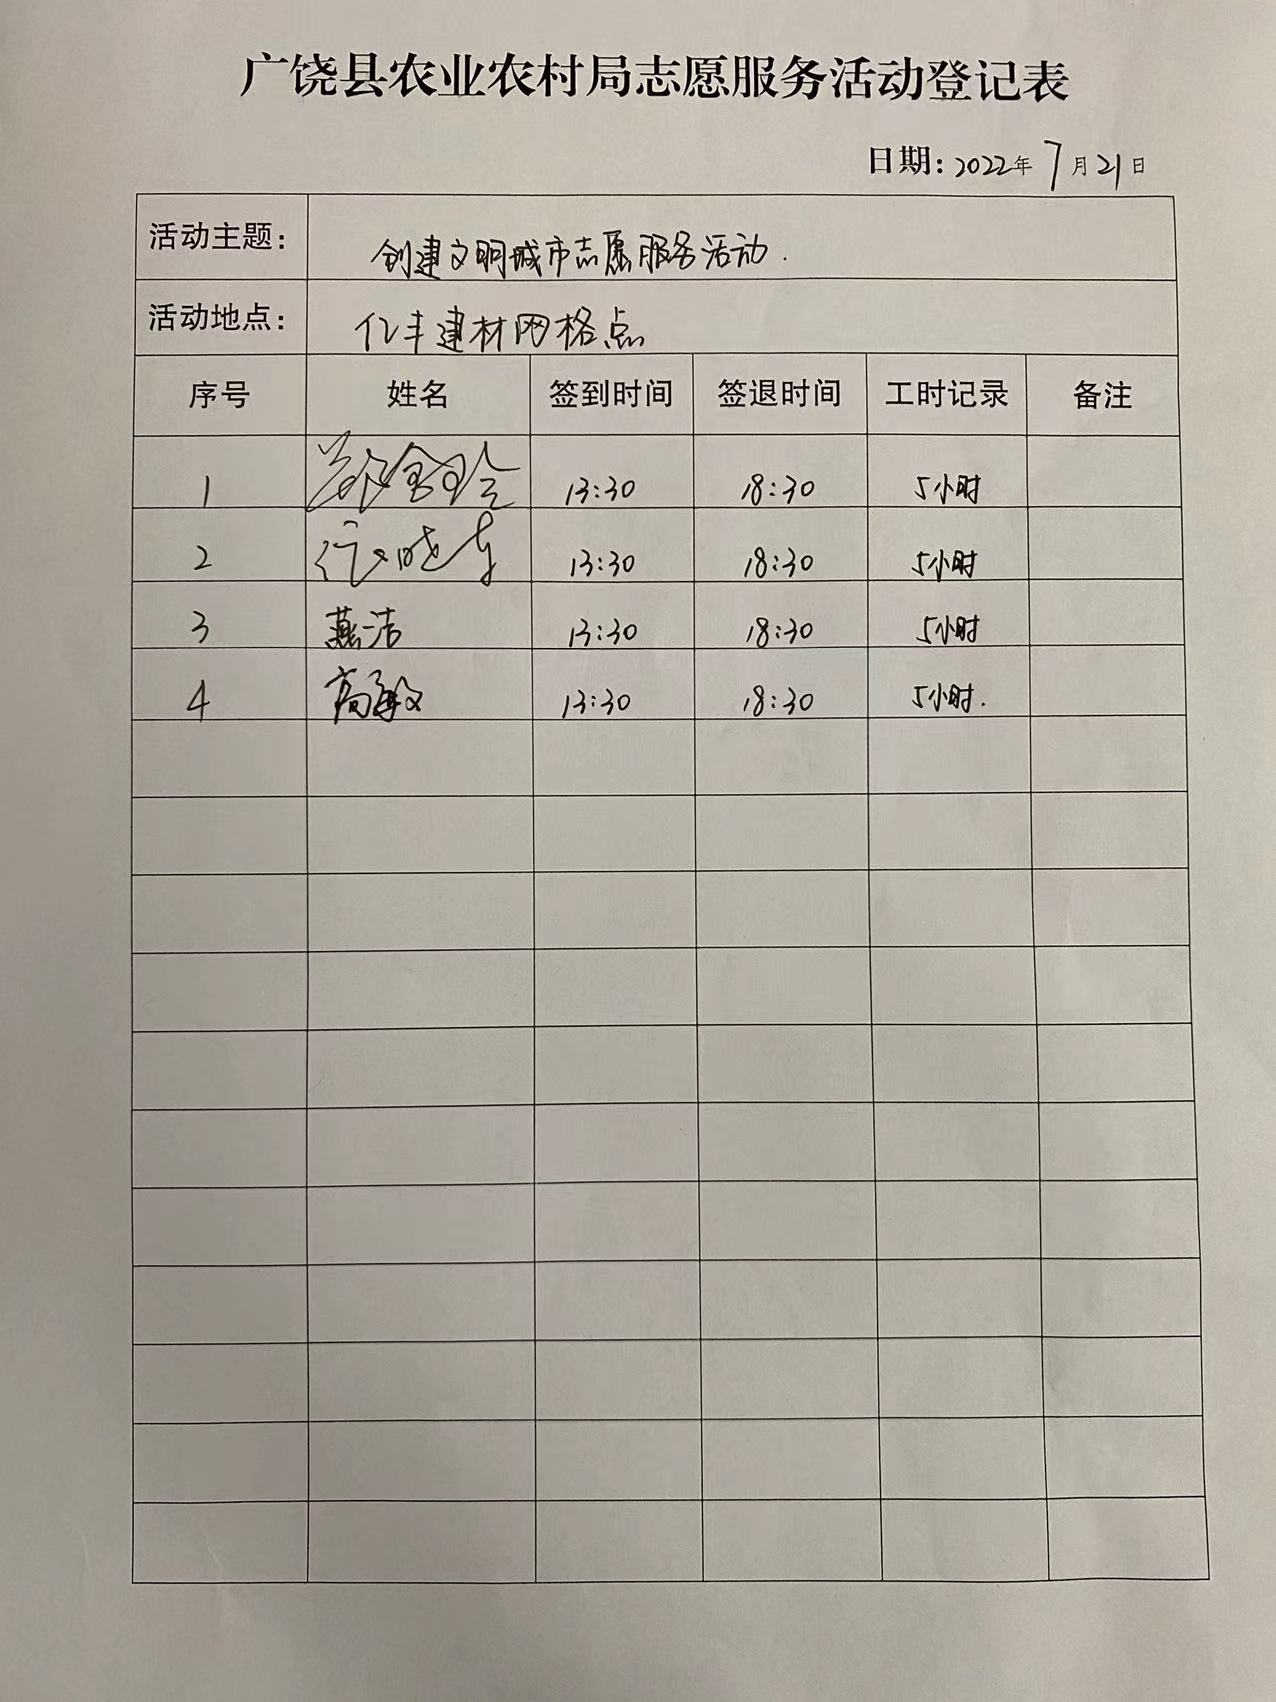 广饶县农业农村局志愿服务活动登记表
日期：2022年7月21日
活动主题： 创建文明城市志愿服务活动.
活动地点： 亿丰建材网格点
序号 姓名 签到时间 签退时间 工时记录 备注
1 13:30 18:30 5小时
2 13:30 18:30 5小时
3 燕洁 13:30 18:30 5小时
4 高敏 13:30 18:30 5小时.